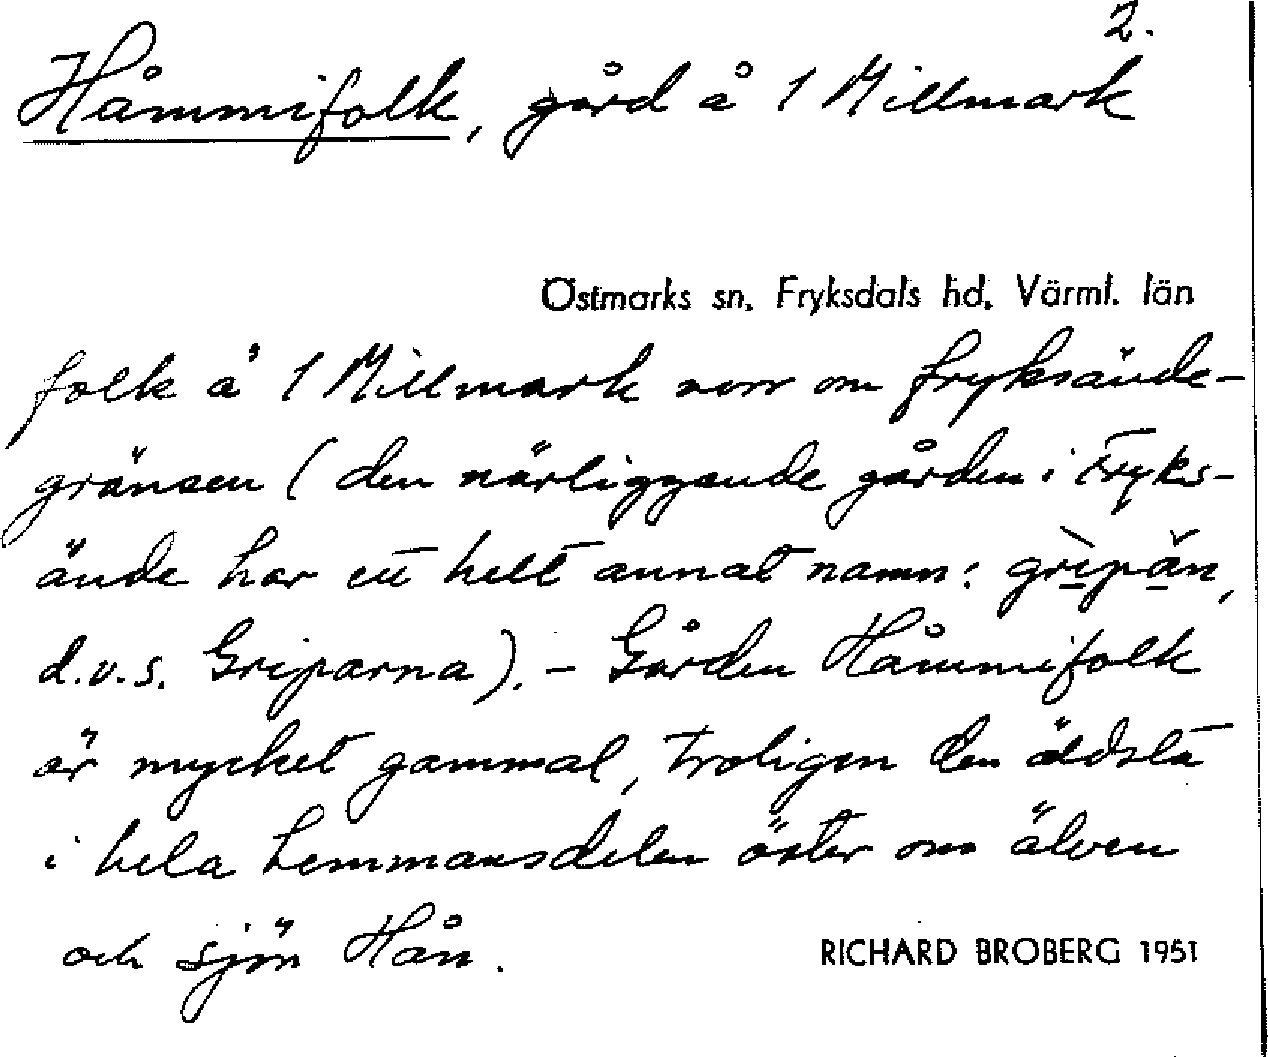 2.
Håmmifolk, gård å 1 Millmark
Östmarks sn, Fryksdals hd, Värml. län
folk å 1 Millmark norr om Fryksände-
gränsen (den närliggande gården i Fryks-
ände har ett helt annat namn: gripän,
d.v.s. Griparna). – Gården Håmmifolk
är mycket gammal, troligen den äldsta
i hela hemmansdelen öster om älven
och sjön Hån.
RICHARD BROBERG 1951